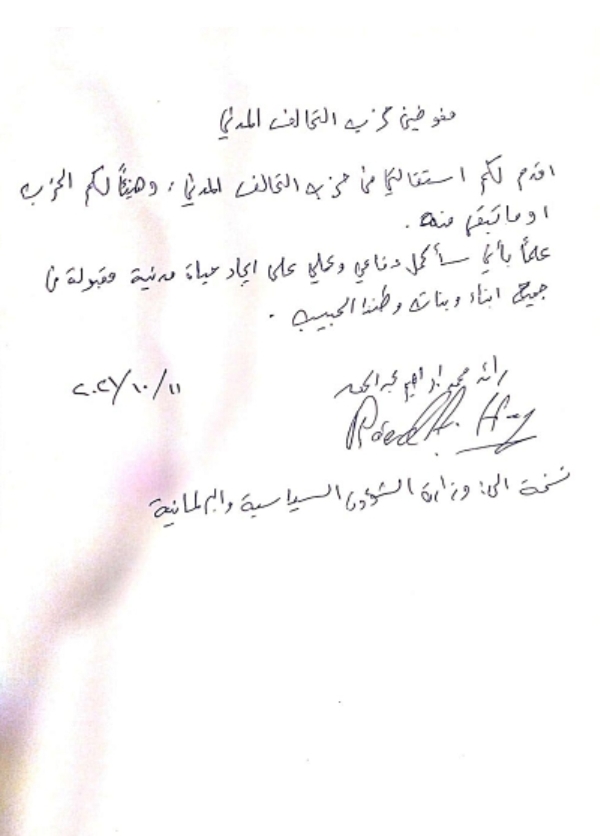 مفوضين حزب التحالف المدني
اقدم لكم استقالتي من حزب التحالف المدني، وهنيئاً لكم الحزب
او ما تبقى منه.
علماً بأني سأكمل دفاعي وعملي على ايجاد حياة مدنية مقبولة من
جميع ابناء وبنات وطننا الحبيب.
رائد محمد ابراهيم
١١/١٠/
نسخة الى: وزارة الشؤون السياسية والبرلمانية